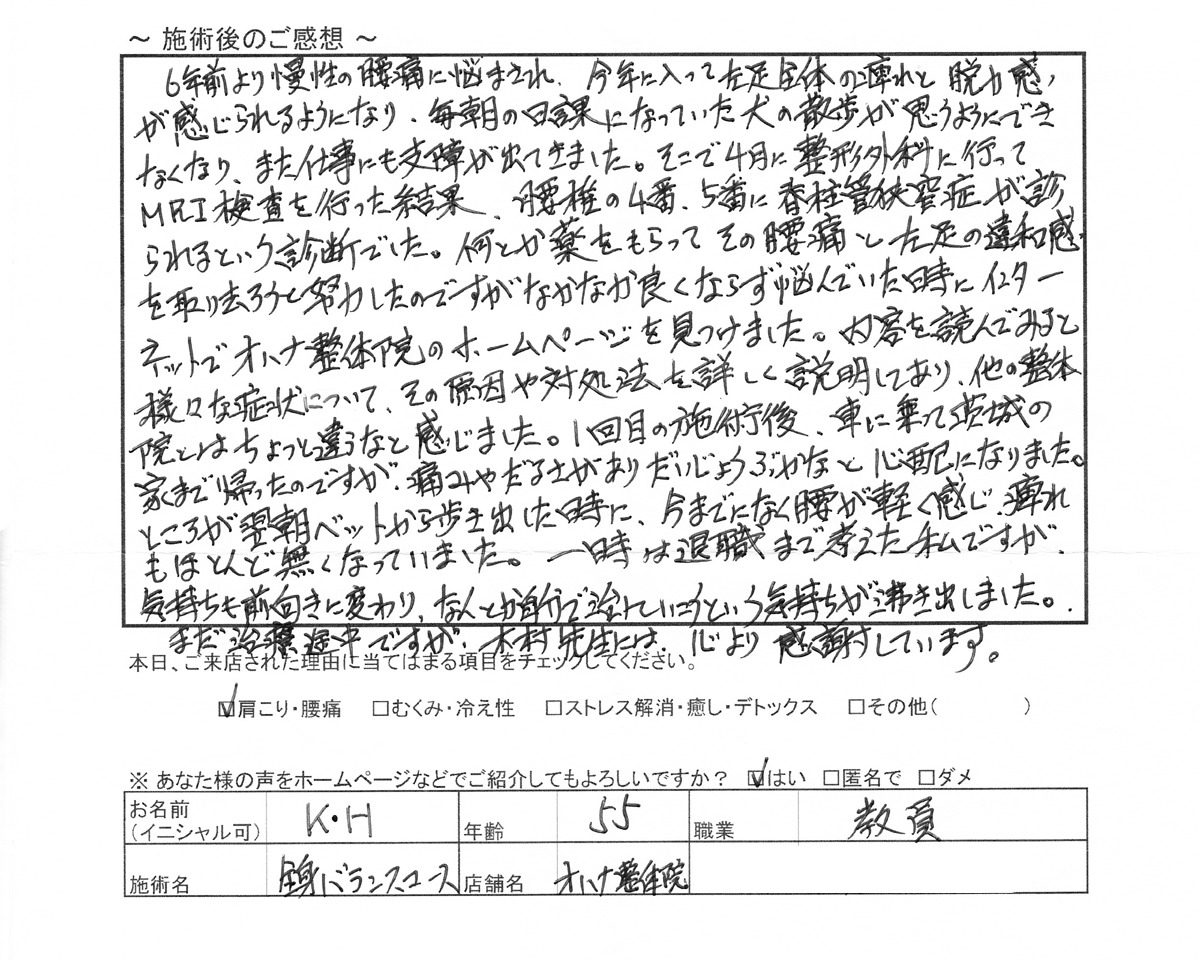 ～ 施術後のご感想 ～
6年前より慢性の腰痛に悩まされ、今年に入って左足全体の痺れと脱力感
が感じられるようになり、毎朝の日課になっていた犬の散歩が思うようにでき
なくなり、また仕事にも支障が出てきました。そこで4月に整形外科に行って
MRI検査を行った結果、腰椎の4番、5番に脊柱管狭窄症が診
られるという診断でした。何とか薬をもらってその腰痛と左足の違和感
を取り去ろうと努力したのですがなかなか良くならず悩んでいた時にインター
ネットでオハナ整体院のホームページを見つけました。内容を読んでみると
様々な症状について、その原因や対処法を詳しく説明してあり、他の整体
院とはちょっと違うなと感じました。1回目の施術後、車に乗って茨城の
家まで帰ったのですが、痛みやだるさがありだいじょうぶかなと心配になりました。
ところが翌朝ベットから歩き出した時に、今までになく腰が軽く感じ痺れ
もほとんど無くなっていました。一時は退職まで考えた私ですが、
気持ちも前向きに変わり、なんとか自分で治していこうという気持ちが沸き出しました。
まだ治療途中ですが、木村先生には、心より感謝しています。
本日、ご来店された理由に当てはまる項目をチェックしてください。
☑肩こり・腰痛 □むくみ・冷え性 □ストレス解消・癒し・デトックス □その他( )
※ あなた様の声をホームページなどでご紹介してもよろしいですか？ ☑はい □匿名で □ダメ
お名前 (イニシャル可) K・H 年齢 55 職業 教員
施術名 全身バランスコース 店舗名 オハナ整体院